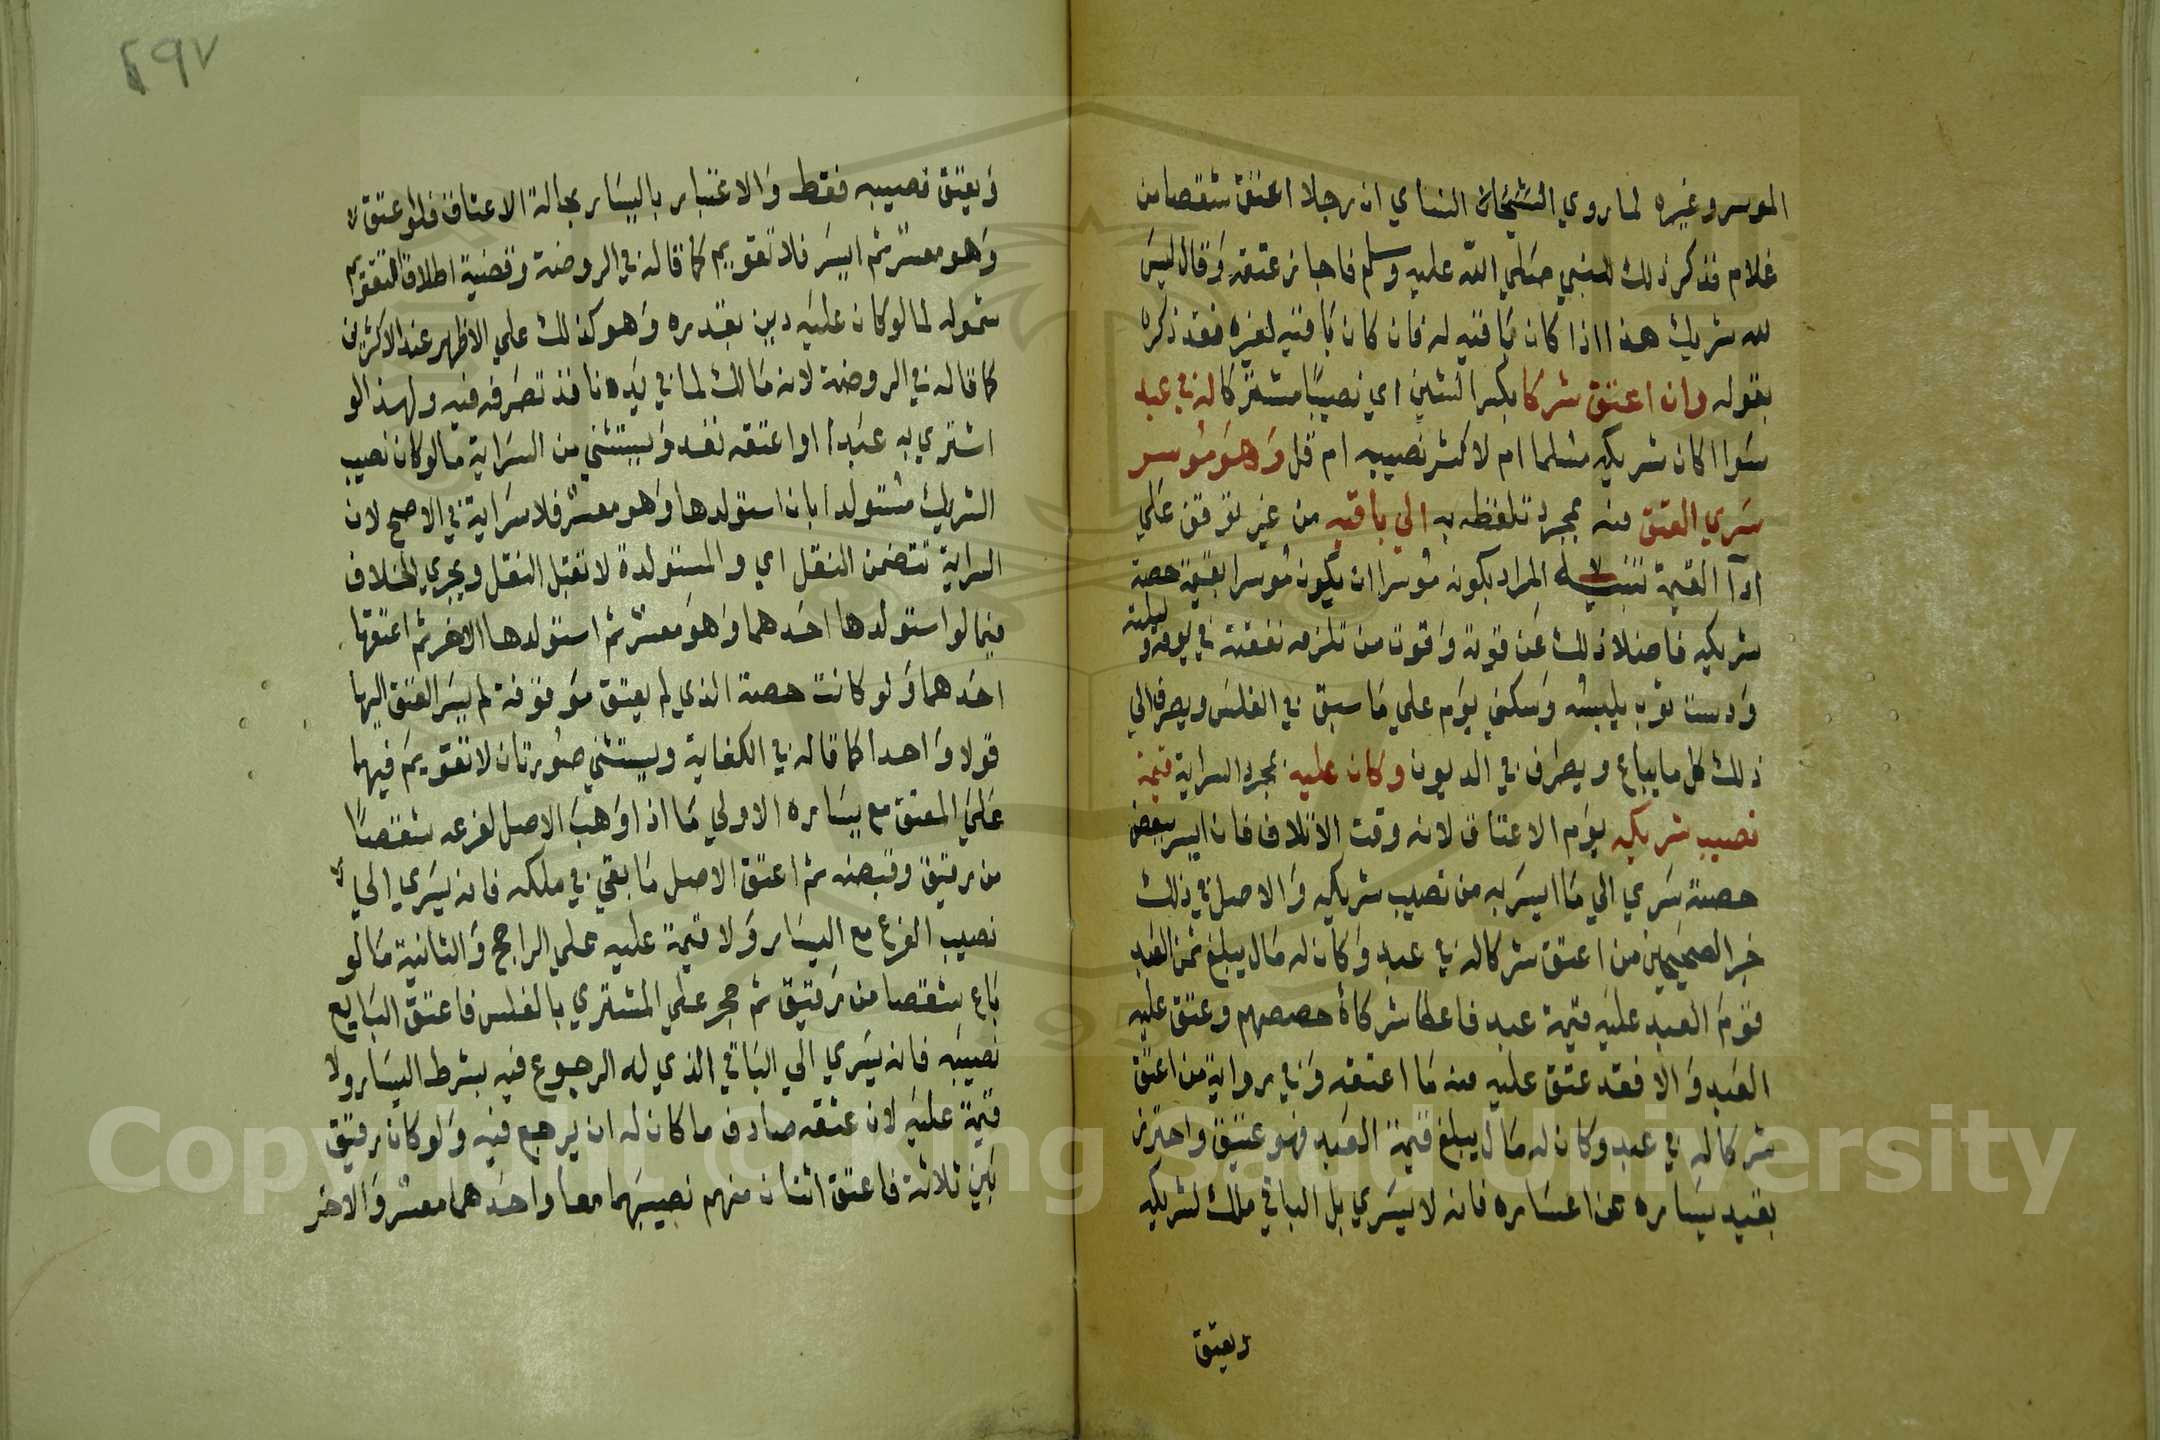 الموسر وغيره لما روي الشيخان النساي ان رجلا اعتق شقصا من
غلام فذكر ذلك للنبي صلي الله عليه وسلم فاجاز عتقه وقال ليس
لله شريك هذا اذا كان باقيه له فان كان باقيه لغيره فقد ذكره
بقوله وان اعتق شركا بكسر الشين اي نصيبا مشتركا له في عبد
سوا اكان شريكه مسلما ام لا كثر نصيبه ام قل وهو موسر
سري العتق منه بمجرد تلفظه به الي باقيه من غير توقف علي
ادآ القيمة تنبيه المراد بكونه موسرا ان يكون موسرا بقيمة حصة
شريكه فاضلا ذلك عن قوته وقوت من تلزمه نفقته في يومه وليلته
ودست ثوب يلبسه وسكني يوم علي ما سبق في الفلس ويصرف الي
ذلك كل ما يباع ويصرف في الديون وكان عليه بمجرد السراية قيمة
نصيب شريكه يوم الاعتاق لانه وقت الاتلاف فان ايسر ببعض
حصته سري الي ما ايسر به من نصيب شريكه والاصل في ذلك
خبر الصحيحين من اعتق شركا له في عبد وكان له مال يبلغ ثمن العبد
قوم العبد عليه قيمة عبد فاعطا شركاه حصصهم وعتق عليه
العبد والا فقد عتق عليه منه ما اعتقه وفي رواية من اعتق
شركا له في عبد وكان له مال يبلغ قيمة العبد فهو عتيق واحترز
بقيد يساره عن اعساره فانه لا يسري بل الباقي ملك لشريكه
ويعتق
٤٩٧
ويعتق نصيبه فقط والاعتبار باليسار بحالة الاعتاق فلو اعتق
وهو معسر ثم ايسر فلا تقويم كما قاله في الروضة وقضية اطلاق التقويم
شموله لما لو كان عليه دين بقدره وهو كذلك علي الاظهر عند الاكثرين
كما قاله في الروضة لانه مالك لما في يده نافذ تصرفه فيه ولهذا لو
اشتري به عبدا واعتقه نفذ ويستثني من السراية ما لو كان نصيب
الشريك مستولدا بان استولدها وهو معسر فلا سراية في الاصح لان
السراية تتضمن النقل اي والمستولدة لا تقبل النقل ويجري الخلاف
فيما لو استولدها احدهما وهو معسر ثم استولدها الاخر ثم اعتقها
احدهما ولو كانت حصة الذي لم يعتق موقوفة لم يسر العتق اليها
قولا واحدا كما قاله في الكفاية ويستثني صورتان لا تقويم فيهما
علي المعتق مع يساره الاولي ما اذا وهب الاصل لفرعه شقصا
من رقيق وقبضه ثم اعتق الاصل ما بقي في ملكه فانه يسري الي
نصيب الفرع مع اليسار ولا قيمة عليه علي الراجح والثانية ما لو
باع شقصا من رقيق ثم حجر علي المشتري بالفلس فاعتق البايع
نصيبه فانه يسري الي الباقي الذي له الرجوع فيه بشرط اليسار ولا
قيمة عليه لان عتقه صادف ما كان له ان يرجع فيه ولو كان رقيق
بين ثلاثة فاعتق اثنان منهم نصيبهما معا واحدهما معسر والاخر
Copyright © King Saud University